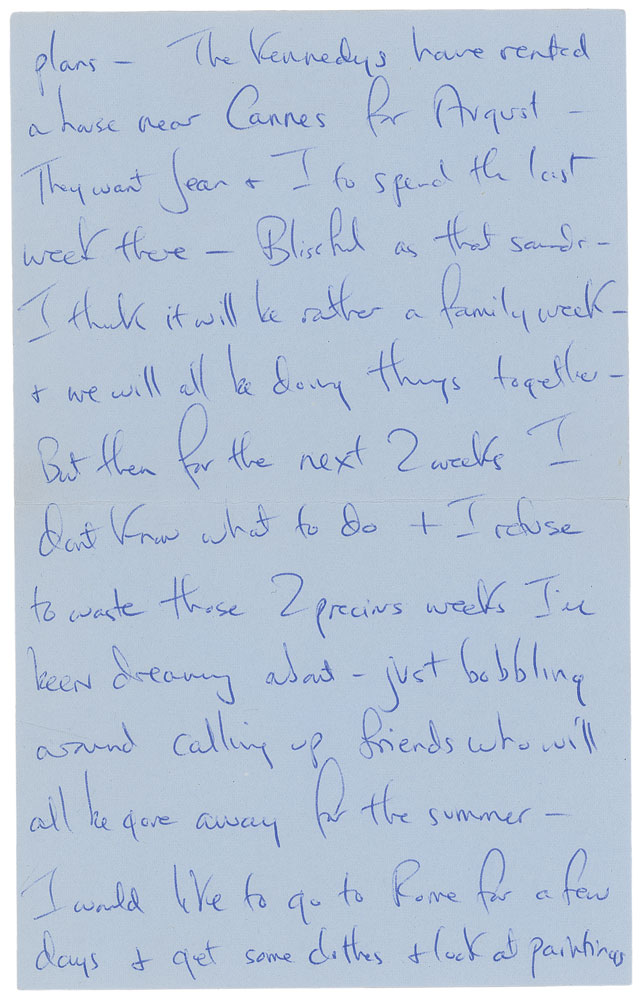 plans – The Kennedys have rented
a house near Cannes for August –
They want Jean + I to spend the last
week there – Blissful as that sounds –
I think it will be rather a family week –
+ we will all be doing things together –
But then for the next 2 weeks I
dont know what to do + I refuse
to waste those 2 precious weeks I've
been dreaming about – just bobbling
around calling up friends who will
all be gone away for the summer –
I would like to go to Rome for a few
days + get some clothes + look at paintings